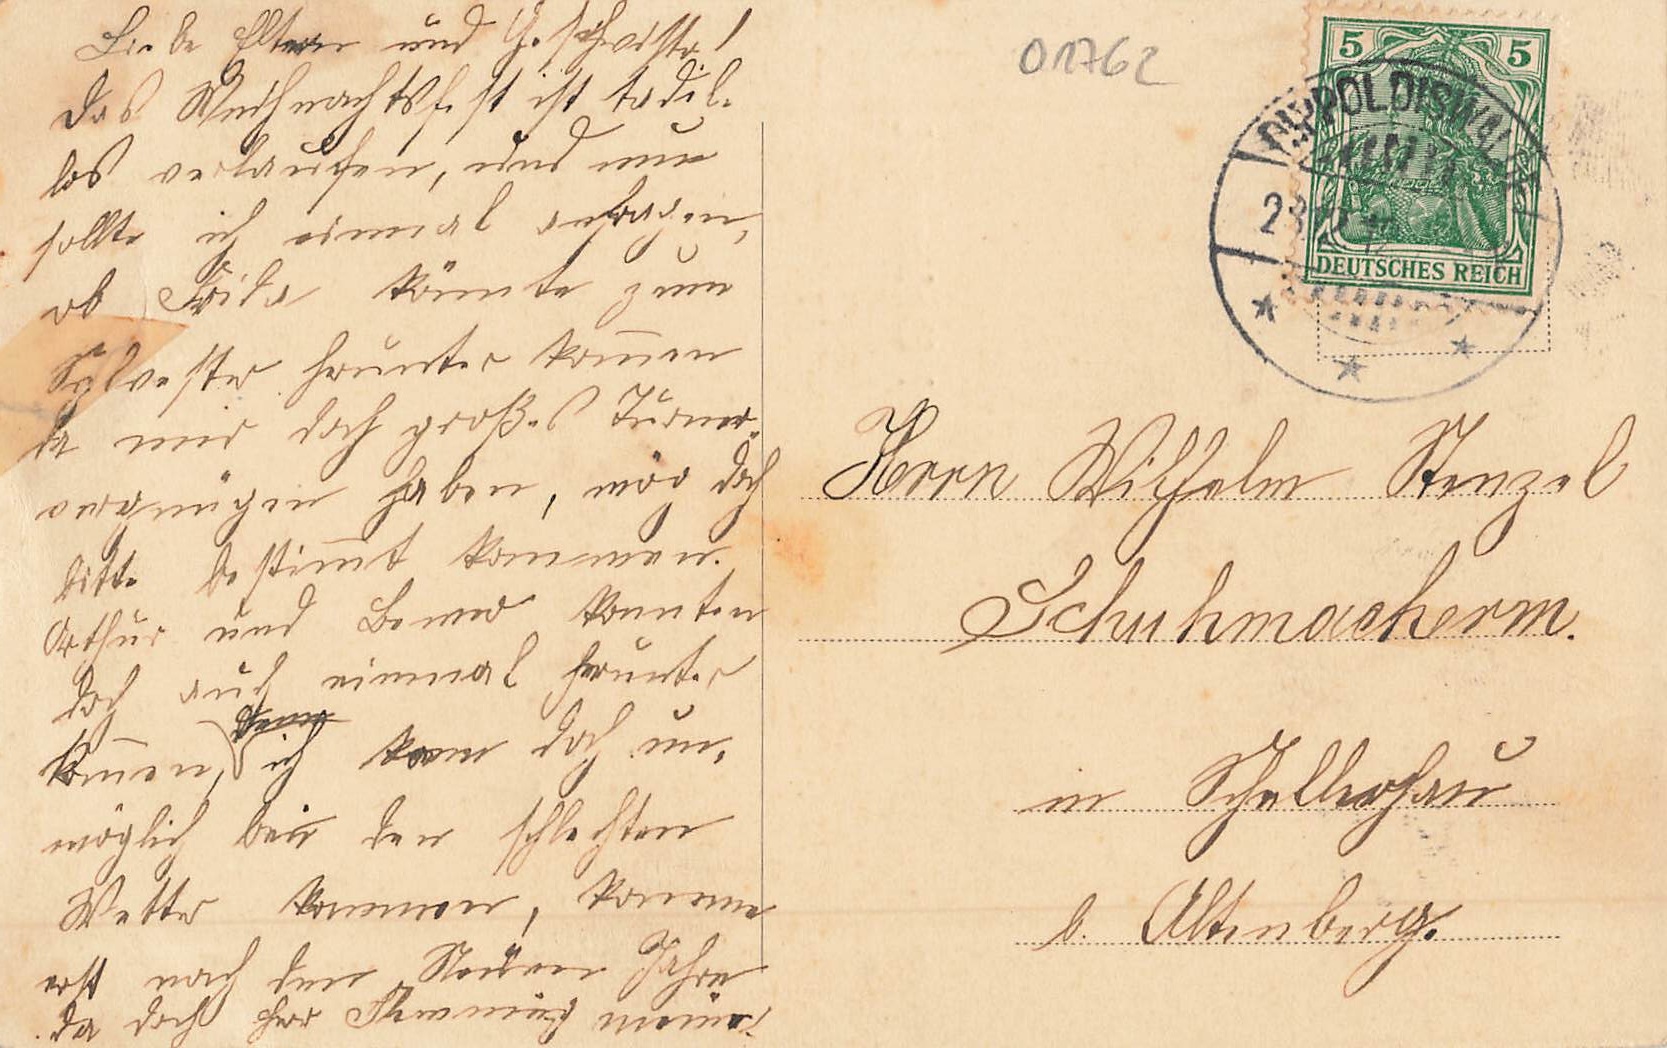 Liebe Eltern und Geschwister!
das Weihnachtsfest ist tadel-
los verlaufen, und nun
sollte ich einmal anfragen,
ob Frida könnte zum
Sylvester herunter kom̄en
da wir doch großes Turner-
vergnügen haben, mög doch
bitte bestim̄t kommen.
Arthur und könnten
doch auch einmal herunter
kom̄en, ich kann doch un-
möglich bei den schlechten
Wetter kommen, komme
erst nach den Neuen Jahre
da doch Herr Flemming meine
01762
5 5
DIPPOLDISWALDE
DEUTSCHES REICH
Herrn Wilhelm Stenzel
Schuhmacherm.
in Schellerhau
b. Altenberg.